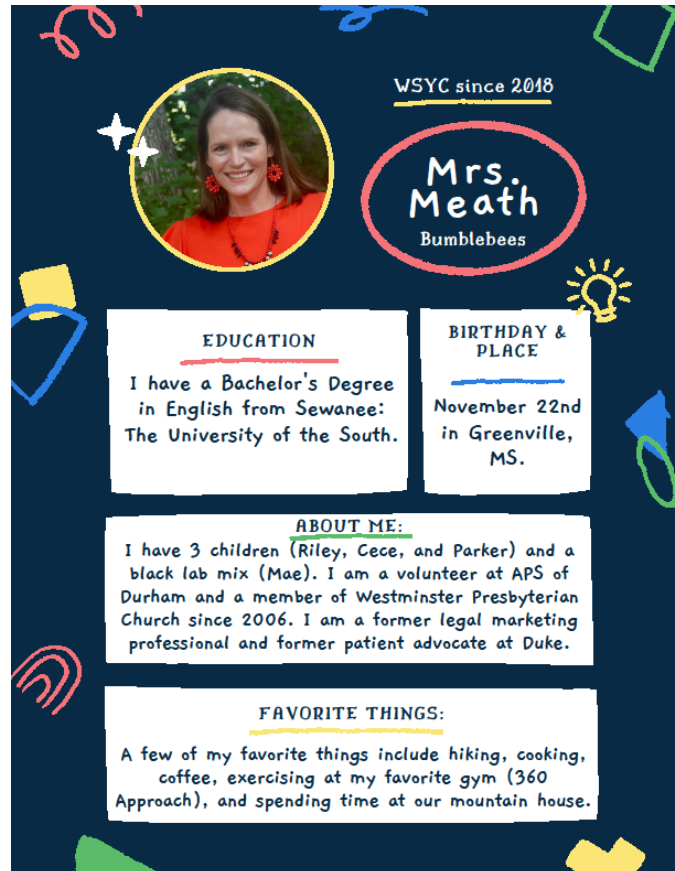 WSYC since 2018
Mrs.
Meath
Bumblebees
EDUCATION
I have a Bachelor's Degree
in English from Sewanee:
The University of the South.
BIRTHDAY &
PLACE
November 22nd
in Greenville,
MS.
ABOUT ME:
I have 3 children (Riley, Cece, and Parker) and a
black lab mix (Mae). I am a volunteer at APS of
Durham and a member of Westminster Presbyterian
Church since 2006. I am a former legal marketing
professional and former patient advocate at Duke.
FAVORITE THINGS:
A few of my favorite things include hiking, cooking,
coffee, exercising at my favorite gym (360
Approach), and spending time at our mountain house.